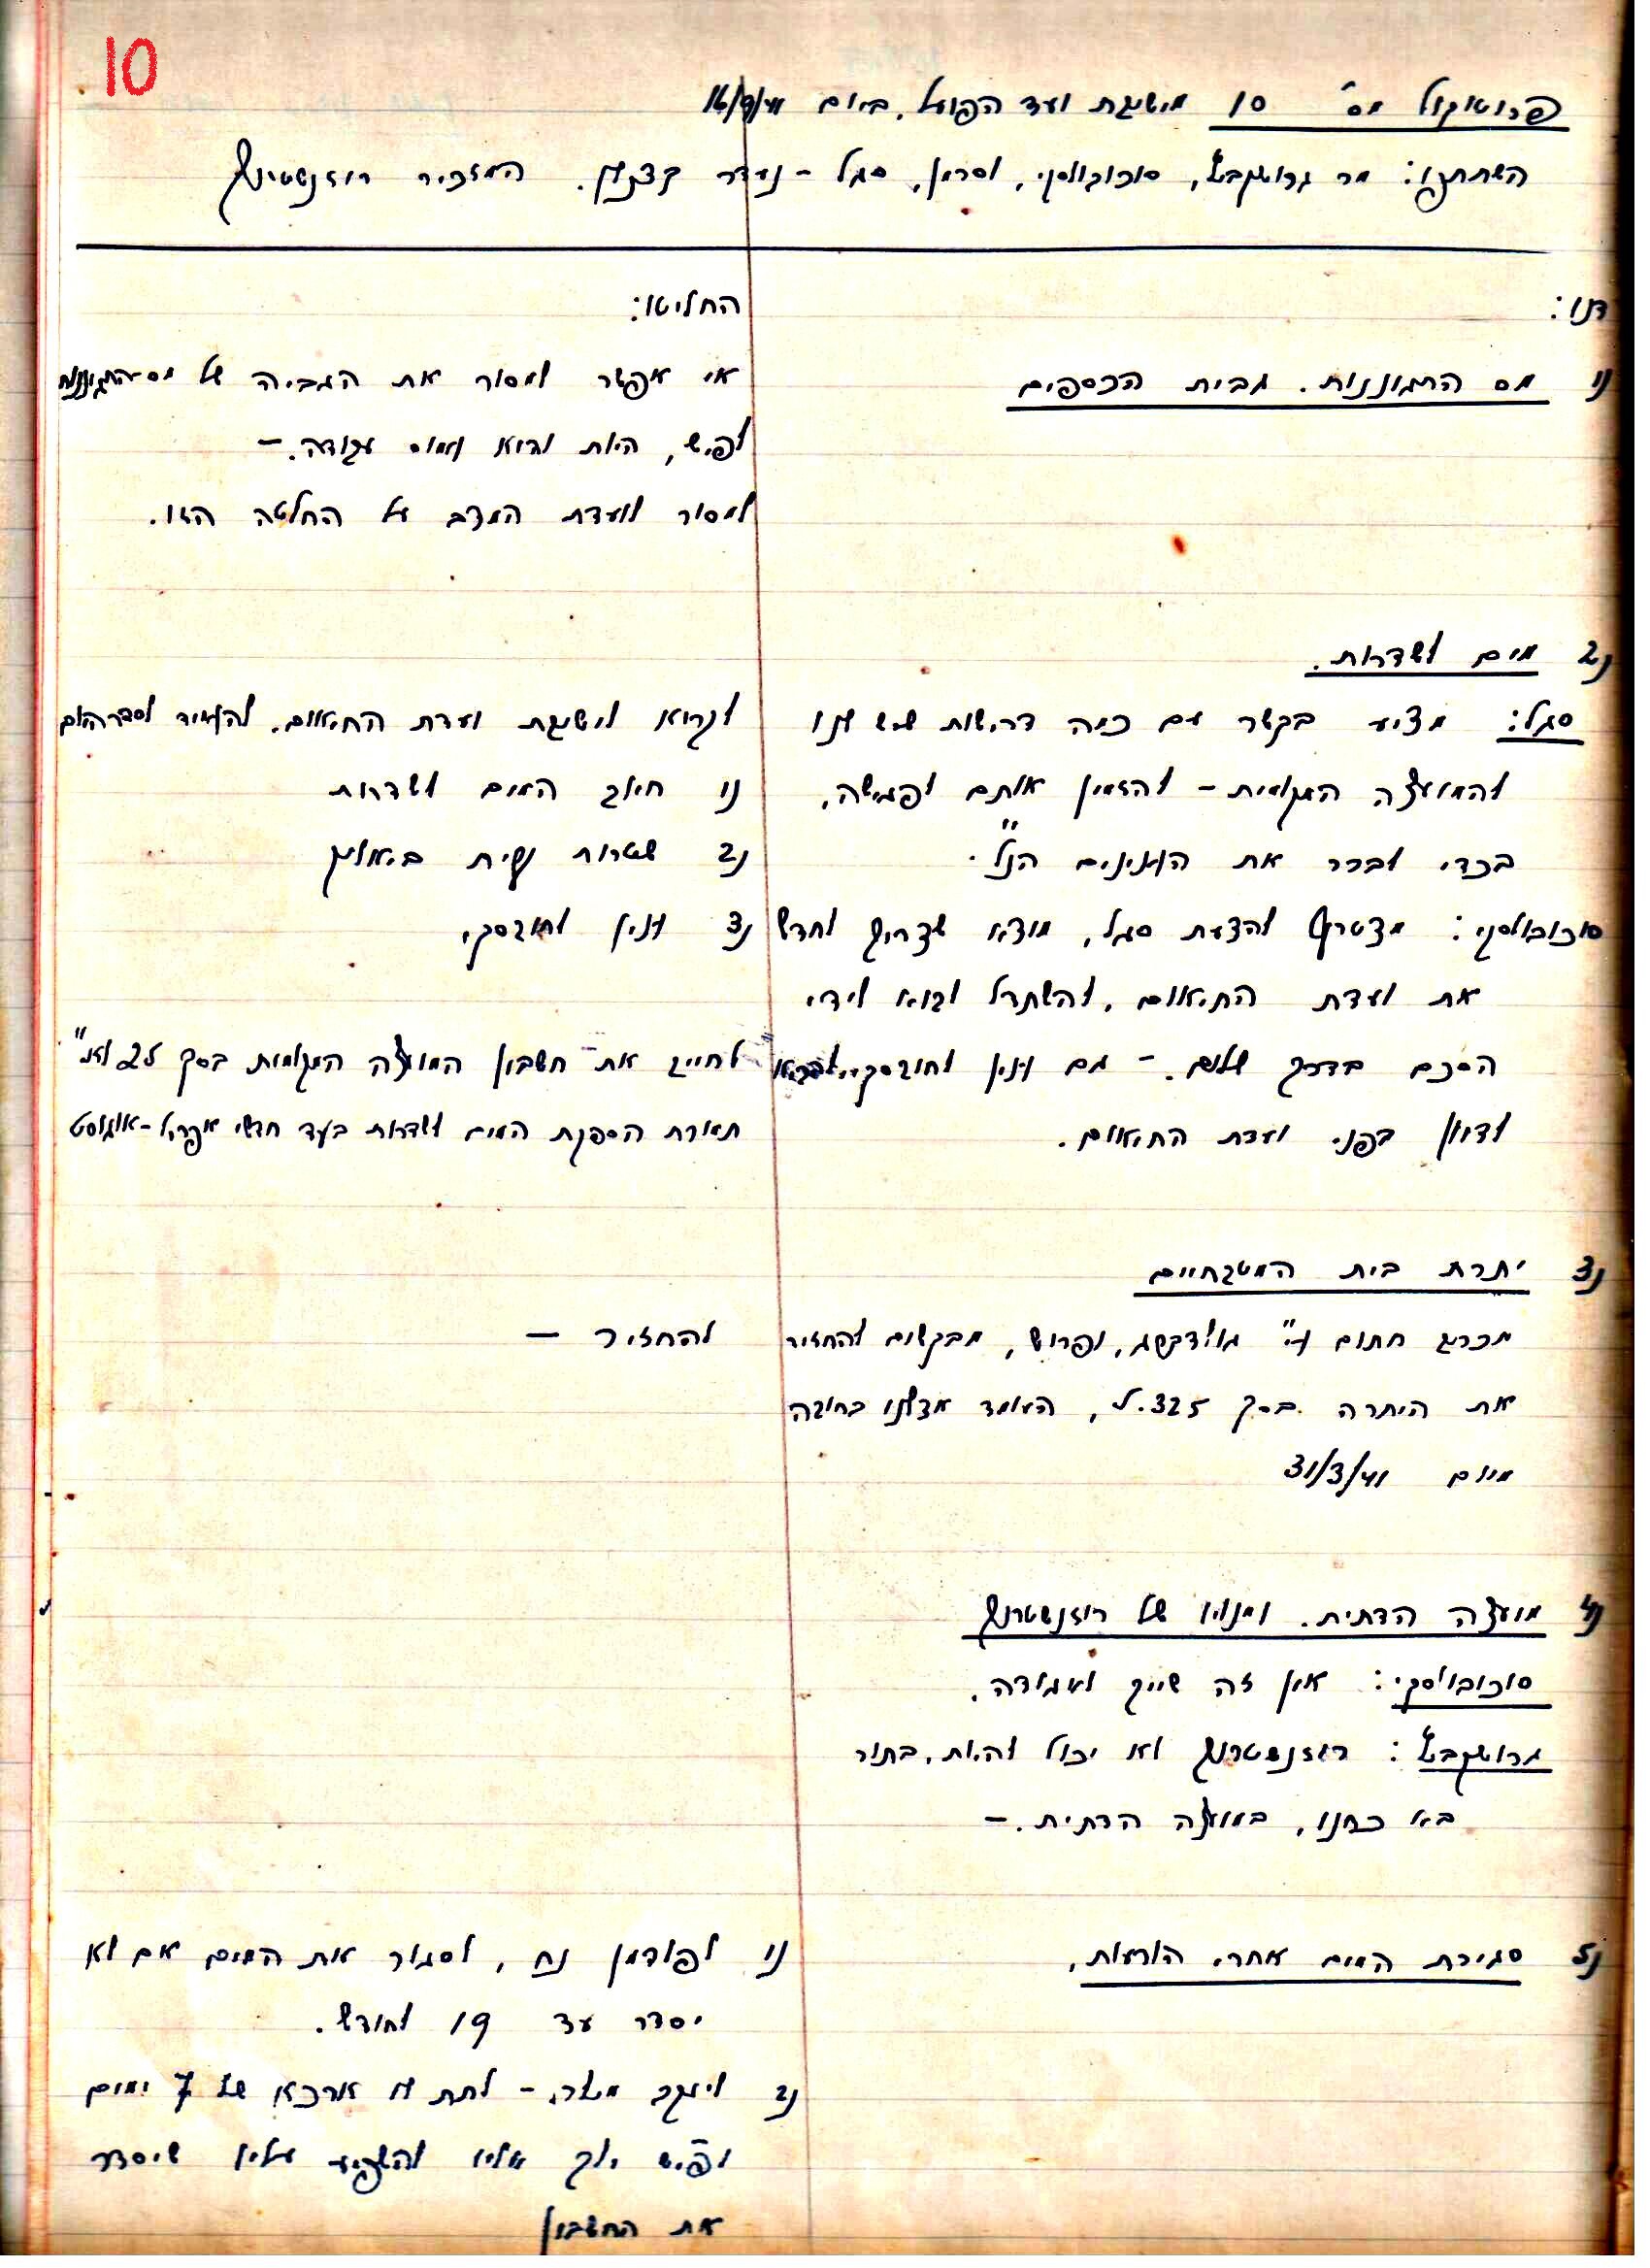 10
פרוטוקול מס' 10 מישיבת ועד הפועל, ביום
השתתפו: מר גרוטקבסט, סוכובולסקי, וסרמן, סגל - נעדר קצנלסון. המזכיר רוזנשטיין
דנו:
החליטו:
1) מס התגוננות. גבית הכספים
אי אפשר למסור את הגביה של מס-התגוננות
לפיש, היות והוא עמוס עבודה. -
למסור לועדת המצב על החלטה הזו.
2) מים לשדרות.
סגל: מציע בקשר עם כמה דרישות שיש לנו
להמועצה המקומית - להזמין אותם לפגישה,
בכדי לברר את הענינים הנ"ל.
סוכובולסקי: מצטרף להצעת סגל, מוצא שצריך לחדש
את ועדת התיאום, להשתדל לבוא לידי
הסכם בדרך שלום. - גם ענין לחוברסקי, להביא
לדיון בפני ועדת התיאום.
לקרוא לישיבת ועדת התיאום. להעמיד לסדר היום
1) חיוב המים לשדרות
2) שטרות קרית ביאליק
3) ענין לחוברסקי
לחייב את חשבון המועצה המקומית בסך 25 לא"י
תמורת הספקת המים לשדרות בעד חדשי אפריל-אוגוסט
3) יתרת בית המטבחיים
מכתב חתום ע"י גולדברג, ופרוש, מבקשים להחזיר
את היתרה בסך 325.ל, העומד אצלנו בחובה
מיום 31/3/41
להחזיר -
4) מועצה הדתית. ומנויו של רוזנשטרוך
סוכובולסקי: אין זה שייך לעבודה.
גרוטקבסט: רוזנשטרוך לא יכול להיות, בתור
בא כחנו, במועצה הדתית. -
5) סגירת המים אחרי הודעות.
1) לפודמן נח, לסגור את המים אם לא
יסדר עד 19 לחודש.
2) ליעקב מילר, - לתת לו ארכא של 7 ימים
ופיש ילך אליו להשפיע עליו שיסדר
את החשבון